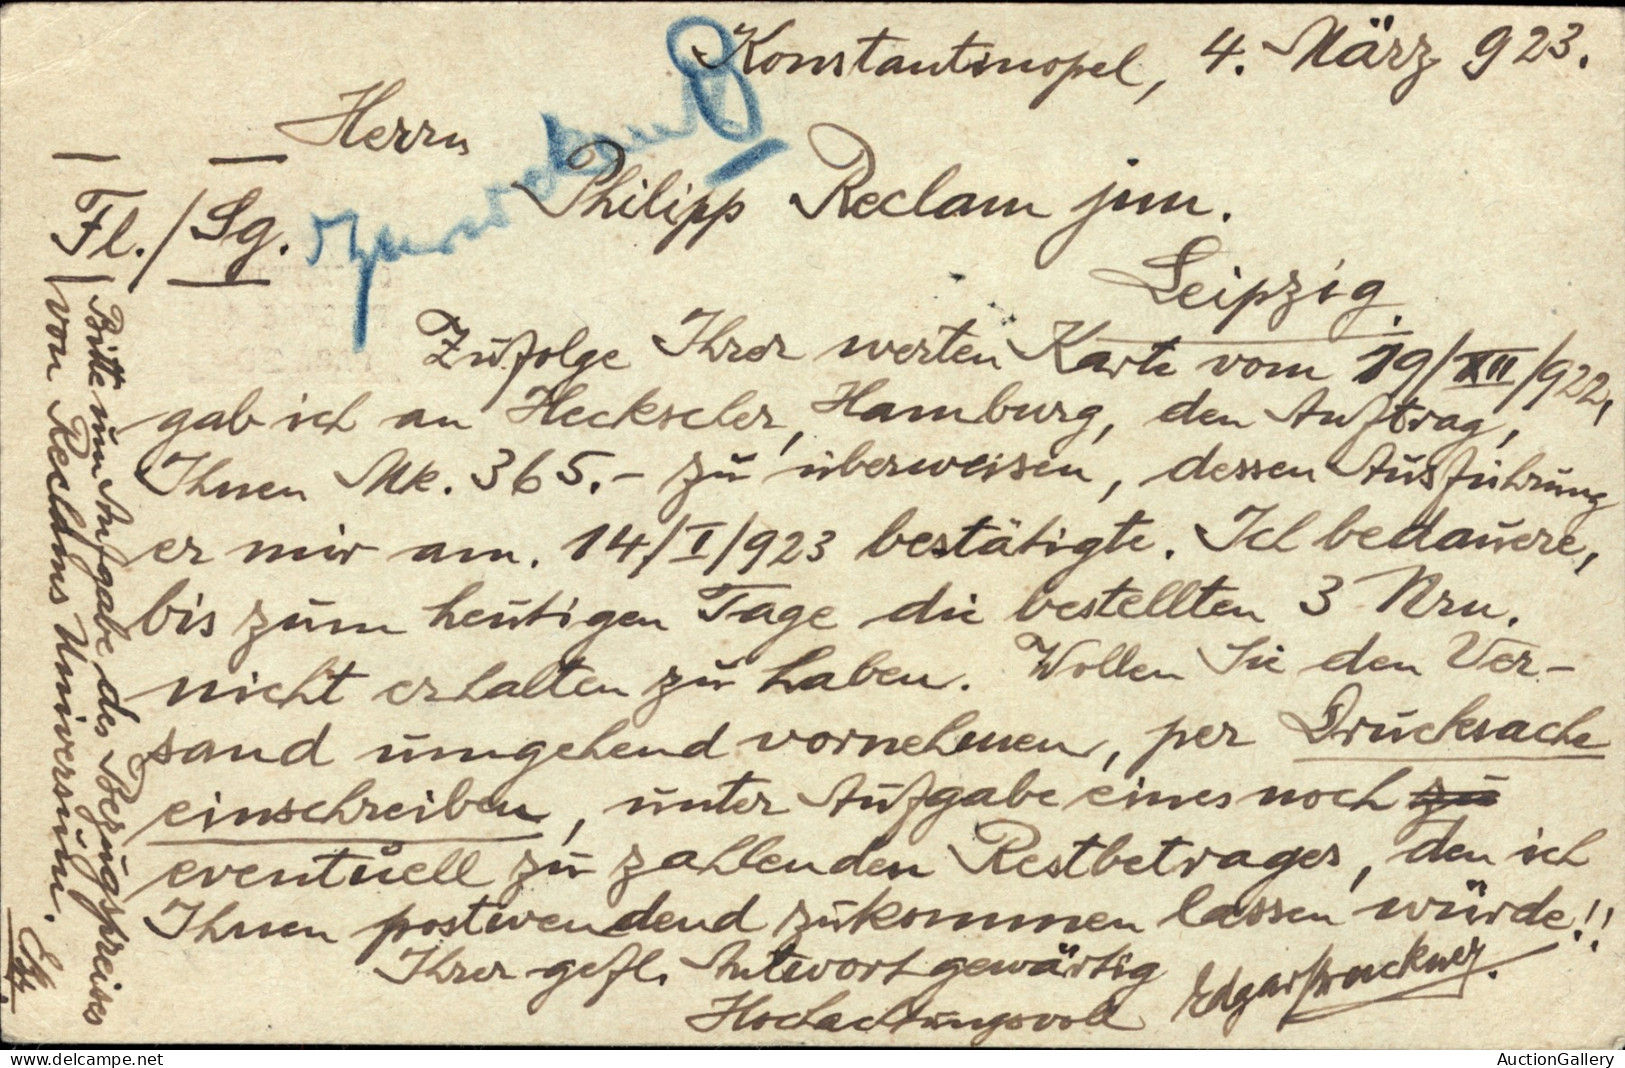 Konstantinopel, 4. März 923.
Herrn
Philipp Reclam jun.
Fl./Sg.
Leipzig.
Zufolge Ihrer werten Karte vom 19/XII/922,
gab ich an Heckscher, Hamburg, den Auftrag,
Ihnen Mk. 365.- zu überweisen, dessen Ausführung
er mir am. 14/I/923 bestätigte. Ich bedauere,
bis zum heutigen Tage die bestellten 3 Nrn.
nicht erhalten zu haben. Wollen Sie den Ver-
sand umgehend vornehmen, per Drucksache
einschreiben, unter Aufgabe eines noch zu
eventuell zu zahlenden Restbetrages, den ich
Ihnen postwendend zukommen lassen würde!!
Ihrer gefl. Antwort gewärtig
Hochachtungsvoll
Edgar
Bitte um Aufgabe des Bezugspreises
von Reclams Universum.
AuctionGallery